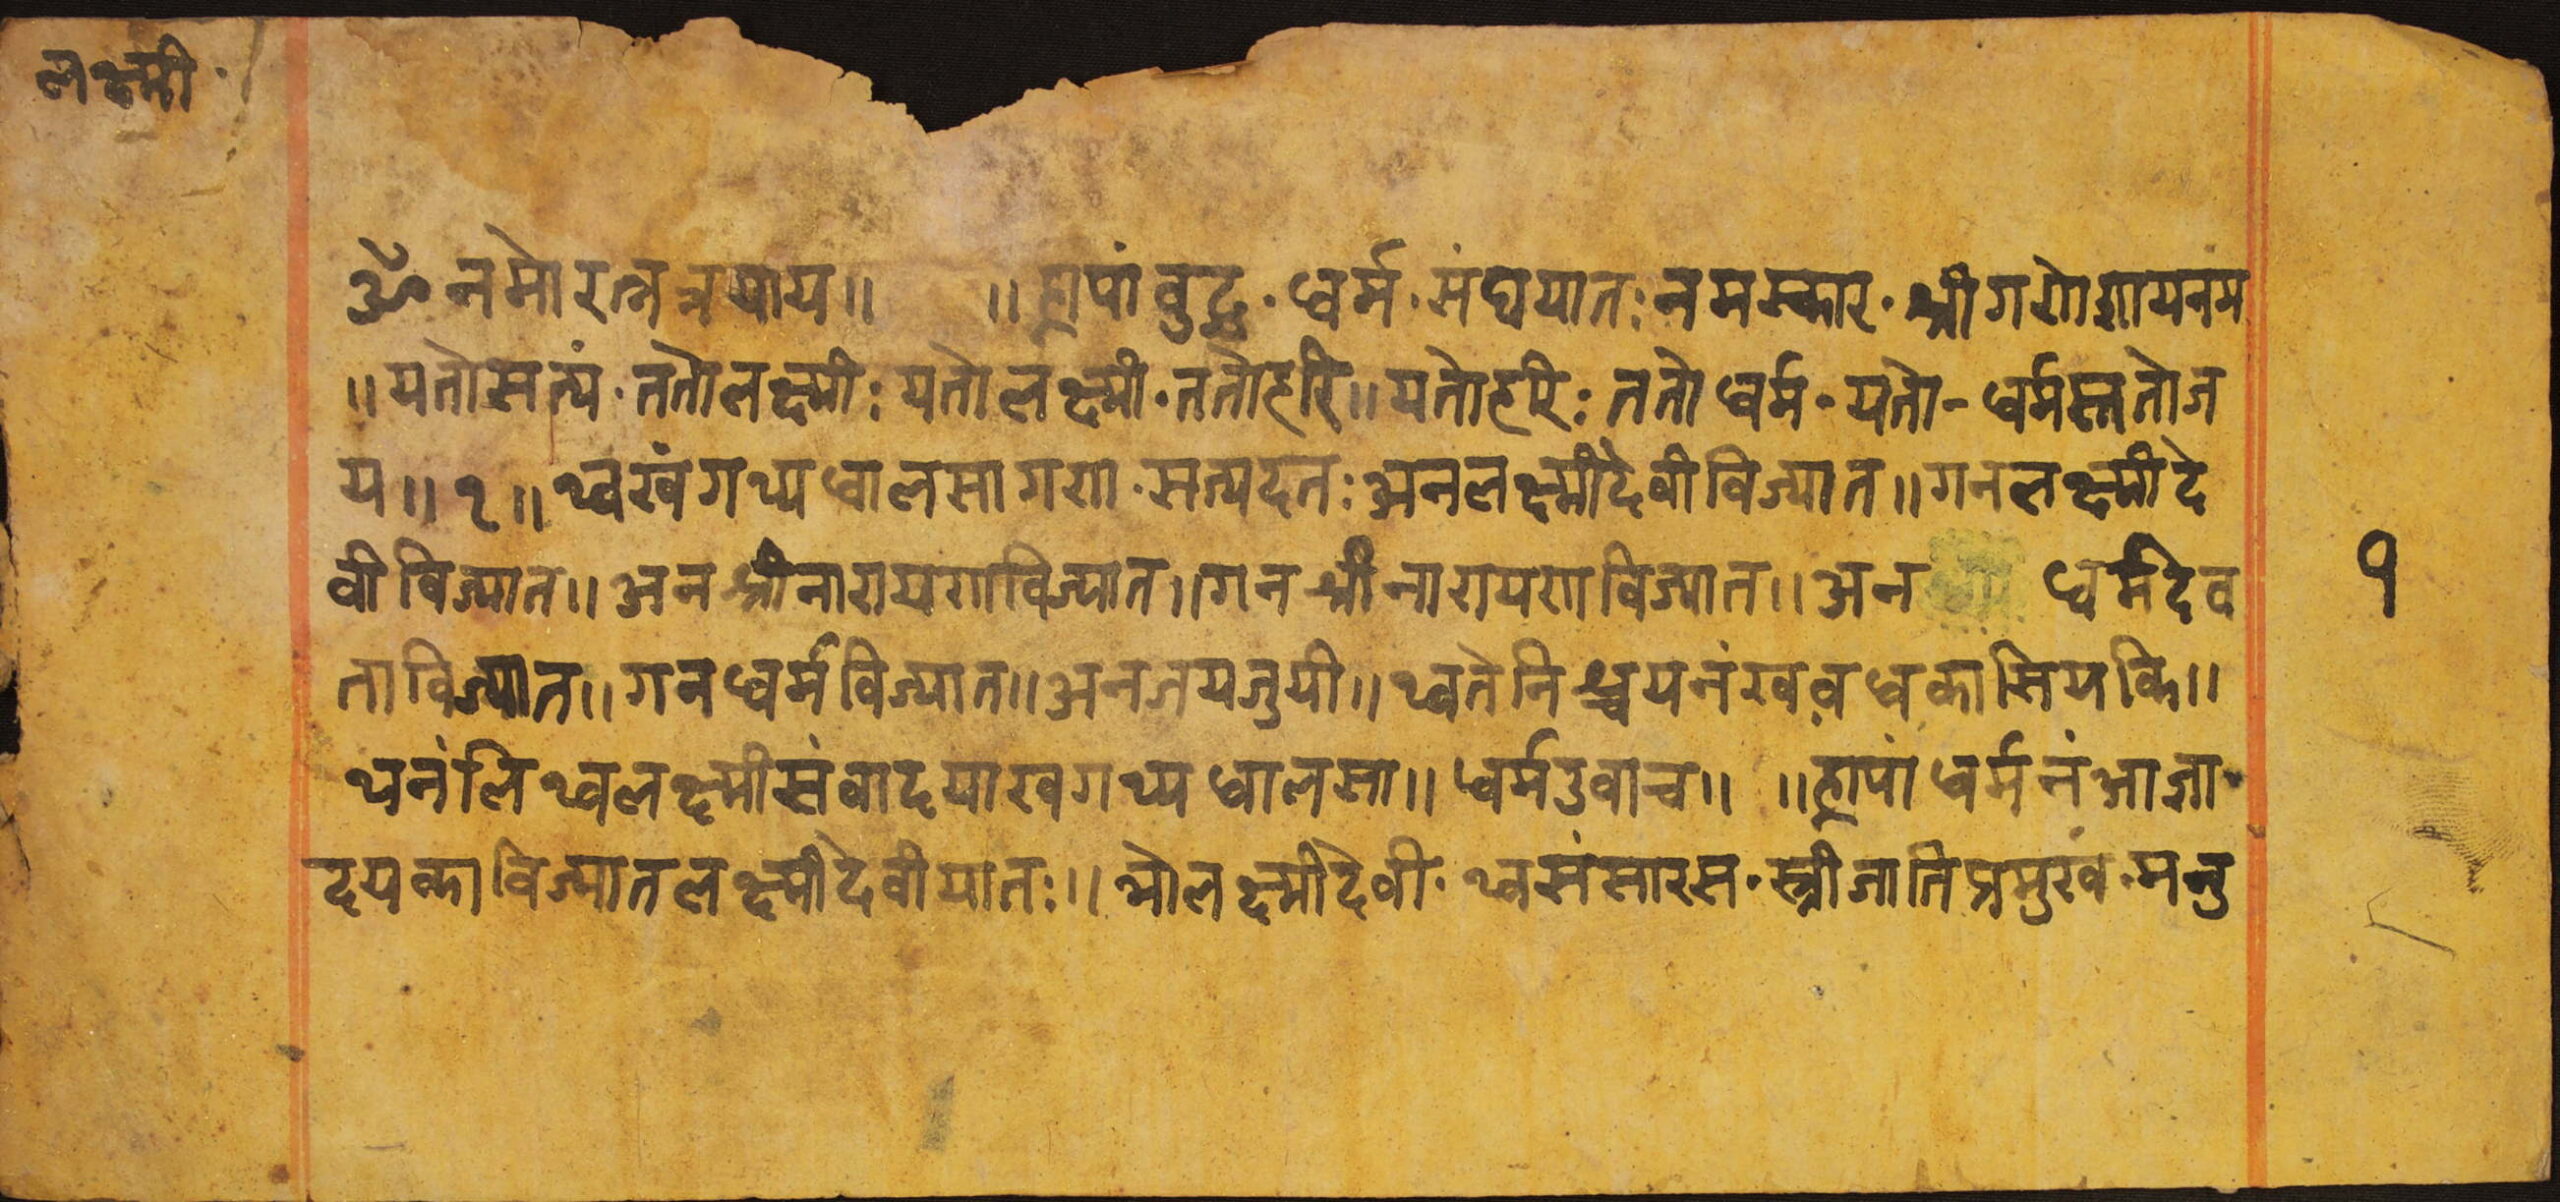 लक्ष्मी
ॐ नमो रत्नत्रयाय॥ ॥ह्रापां वुद्ध · धर्म · संघयातः नमस्कार · श्रीगणेशायनम
॥यतोसत्यं · ततोलक्ष्मीः यतोलक्ष्मी · ततोहरि॥ यतोहरिः ततो धर्म · यतो - धर्मस्ततोज
य॥१॥ थ्वखंगथ्य धालसा गणा · सत्यदतः अनलक्ष्मीदेवीविज्यात॥ गनलक्ष्मीदे
वीविज्यात॥ अन श्रीनारायणविज्यात॥ गन श्रीनारायणविज्यात॥ अन धर्मदेव
ताविज्यात॥ गन धर्मविज्यात॥ अनजयजुयी॥ थ्वतेनिश्चयनं खव धकासियकि॥
थनंलि थ्वलक्ष्मीसंवादयाखगथ्य धालसा॥ धर्मउवाच॥ ॥ह्रापां धर्मनं आज्ञा
दयकाविज्यातलक्ष्मीदेवीयातः॥ भोलक्ष्मीदेवी · थ्वसंसारस · स्त्रीजातिप्रमुखं · मनु
१